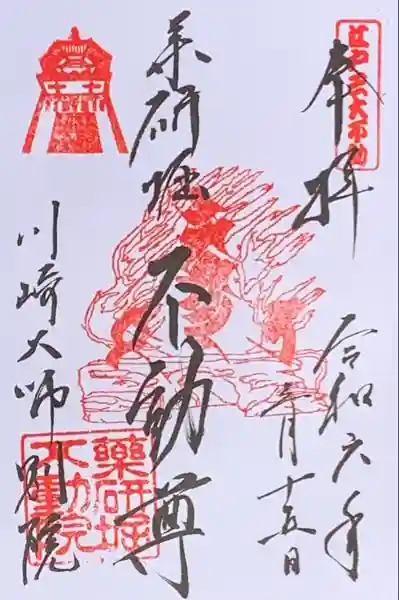 江戸三大不動
奉拝
令和六年
三月十五日
薬研堀
不動尊
川崎大師別院
薬研堀
不動院